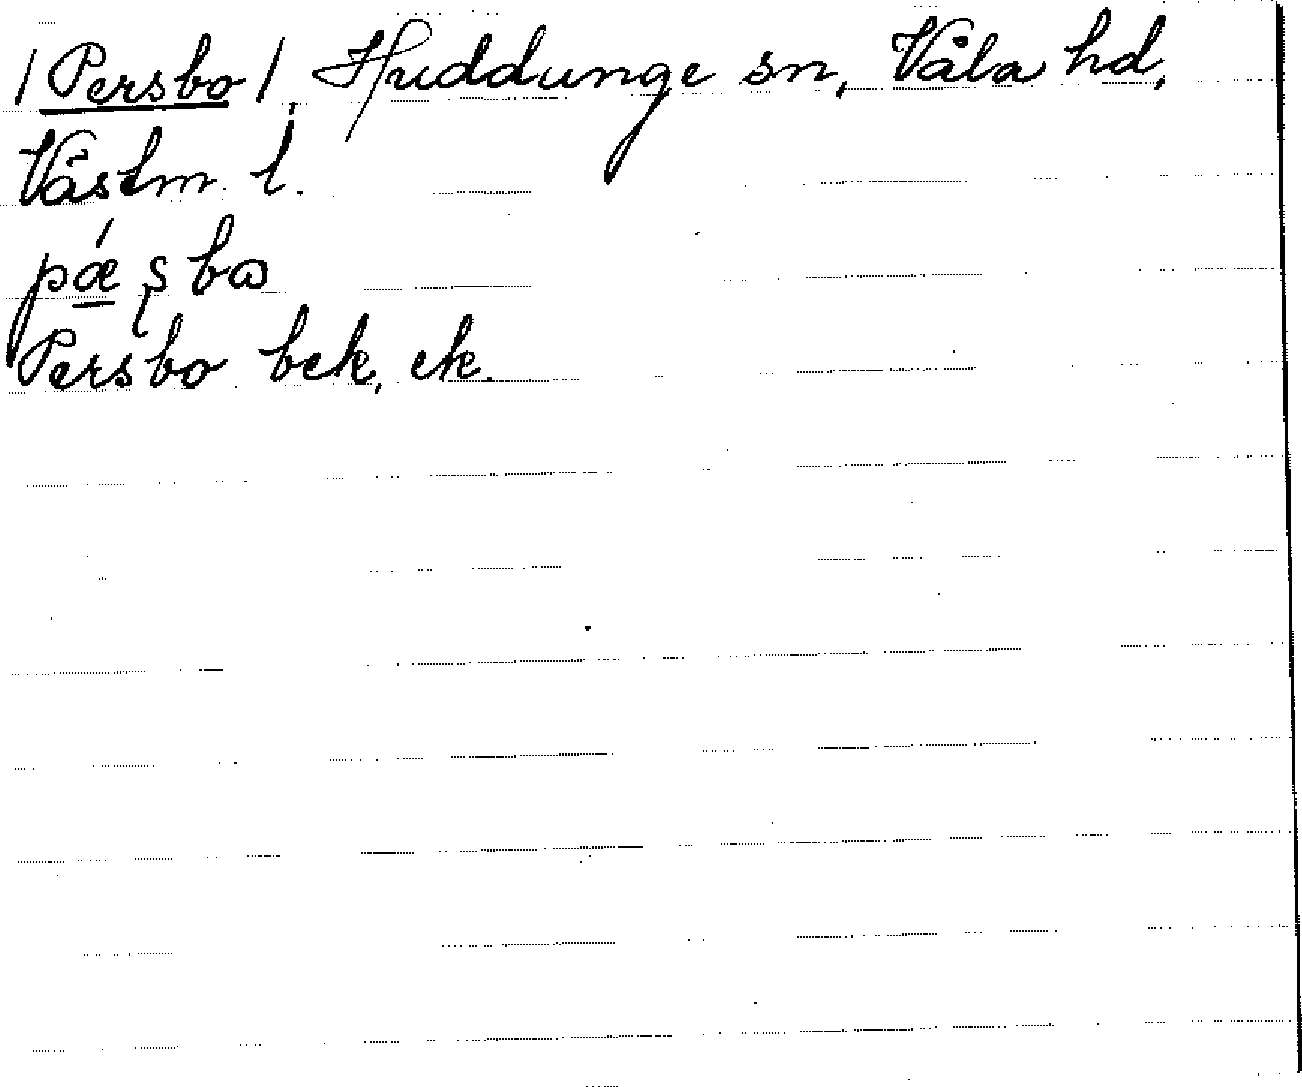 /Persbo/, Huddunge sn, Våla hd,
Västm. l.
pǽʂbɷ
Persbo bek, ek.